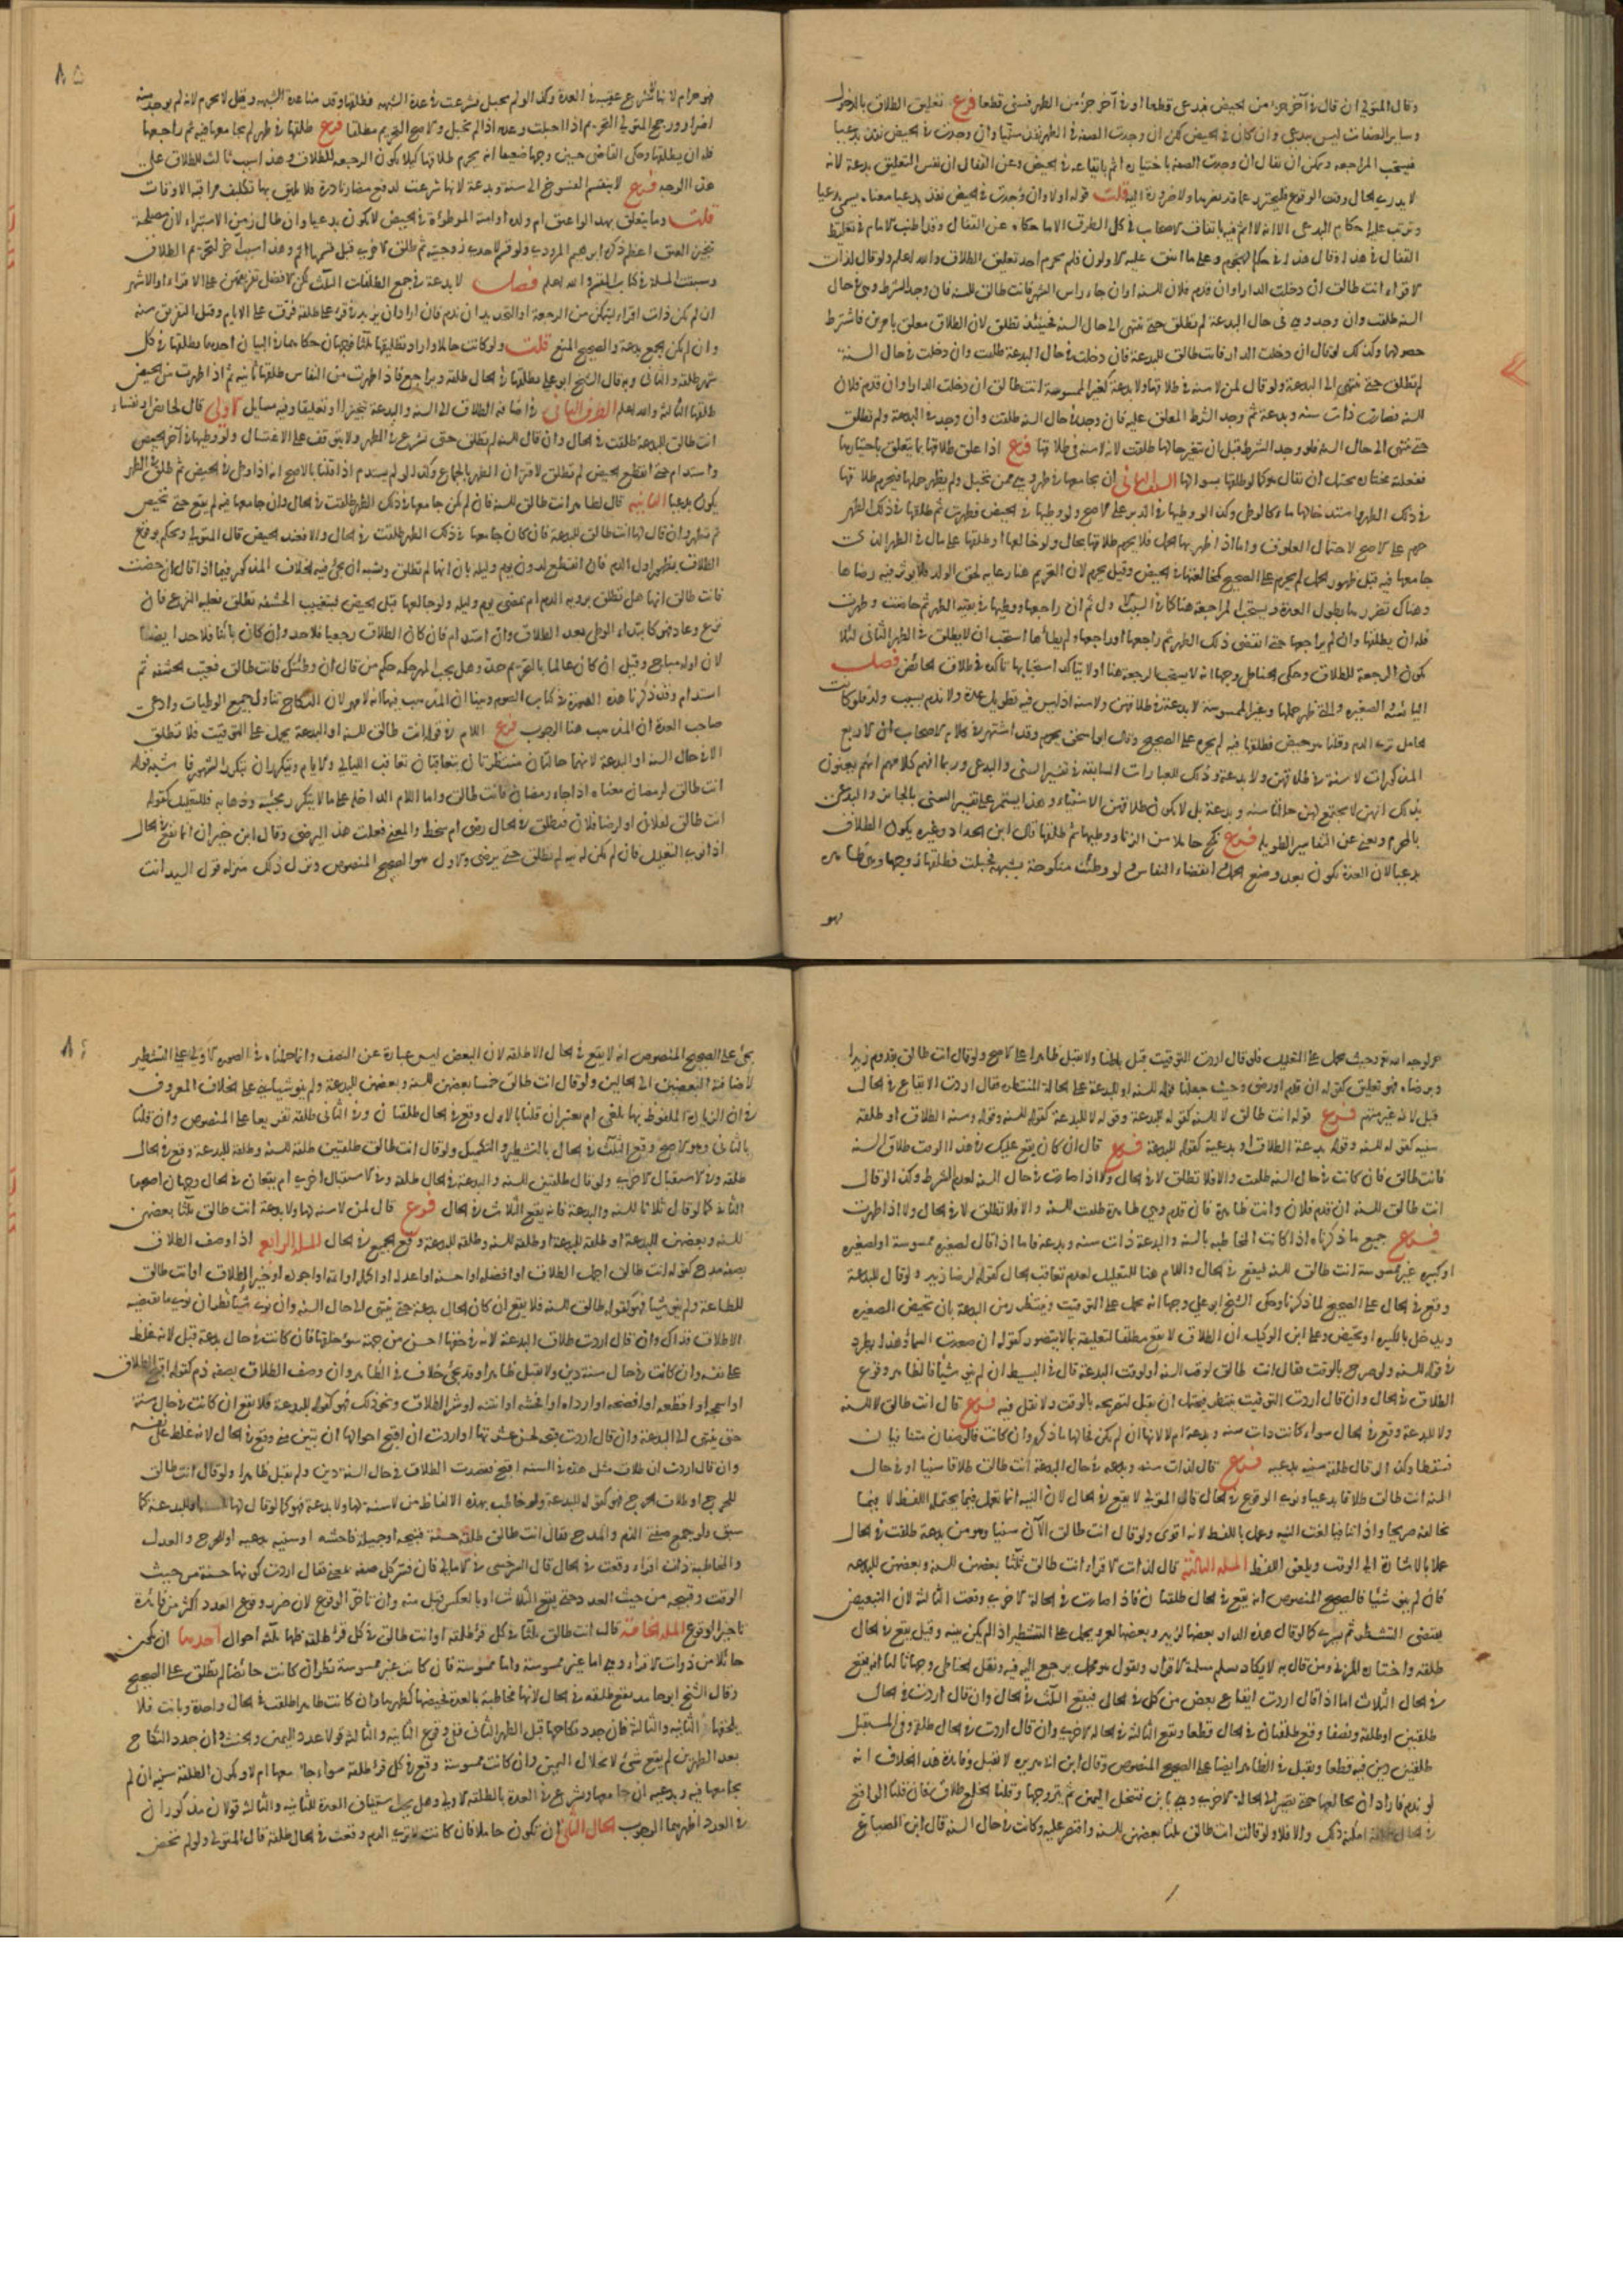 وقال المتولي ان قال في آخر جزء من الحيض فبدعي قطعا او في آخر جزء من الطهر فسني قطعا فرع تعليق الطلاق بالدخول
وساير الصفات ليس ببدعي وان كان في الحيض لكن ان وجدت الصفة في الطهر نفذ سنيا وان وجدت في الحيض نفذ بدعيا
فيستحب المراجعة ويمكن ان يقال ان وجدت الصفة باختياره اثم بايقاعه في الحيض وعن القفال ان نفس التعليق بدعة لانه
لا يدري الحال وقت الوقوع فليحترز عما قد يضر بها ولا ضرورة اليه قلت قوله اولا وان وجدت في الحيض نفذ بدعيا معناه يسمى بدعيا
وترتب عليه احكام البدعي الا انه لا اثم فيه باتفاق الاصحاب في كل الطرق الا ما حكاه عن القفال وقد اطنب الامام في تغليط
القفال في هذا وقال هذا في حكم الهجوم على ما اتفق عليه الاولون فلم يحرم احد تعليق الطلاق والله اعلم ولو قال لذات
الاقراء انت طالق ان دخلت الدار او ان قدم فلان للسنة او ان جاء راس الشهر فانت طالق للسنة فان وجد الشرط وهي في حال
السنة طلقت وان وجد وهي في حال البدعة لم تطلق حتى تنتهي الى حال السنة فحينئذ تطلق لان الطلاق معلق بامرين فاشترط
حصولهما وكذلك لو قال ان دخلت الدار فانت طالق للبدعة فان دخلت في حال البدعة طلقت وان دخلت في حال السنة
لم تطلق حتى تنتهي الى البدعة ولو قال لمن لا سنة في طلاقها ولا بدعة كغير الممسوسة انت طالق ان دخلت الدار او ان قدم فلان
للسنة فصارت ذات سنة وبدعة ثم وجد الشرط المعلق عليه فان وجد في حال السنة طلقت وان وجد في البدعة ولم تطلق
حتى تنتهي الى حال السنة فلو وجد الشرط قبل ان تتغير حالها طلقت لانه لا سنة في طلاقها فرع اذا علق طلاقها بما يتعلق باختيارها
ففعلته مختارة يحتمل ان يقال هو كما لو طلقها بسوالها السبب الثاني ان يجامعها في طهر وهي ممن تحبل ولم يظهر حملها فيحرم طلاقها
في ذلك الطهر واستدخالها ماءه كالوطئ وكذا لو وطئها في الدبر على الاصح ولو وطئها في الحيض فطهرت ثم طلقها في ذلك الطهر
حرم على الاصح لاحتمال العلوق واما اذا ظهر بها الحمل فلا يحرم طلاقها بحال ولو خالعها او طلقها على مال في الطهر الذي
جامعها فيه قبل ظهور الحمل لم يحرم على الصحيح كمخالعتها في الحيض وقيل يحرم لان التحريم هنا رعاية لحق الولد فلا يوثر فيه رضاها
وهناك تضررها بطول العدة ويستحب المراجعة هنا كما في السبب الاول ثم ان راجعها ووطئها في بقية الطهر ثم حاضت وطهرت
فله ان يطلقها وان لم يراجعها حتى انقضى ذلك الطهر ثم راجعها او راجعها ولم يطأها استحب ان لا يطلق في الطهر الثاني لئلا
تكون الرجعة للطلاق وحكى الحناطي وجها انه لا يستحب الرجعة هنا او لا يتاكد استحبابها تاكده في طلاق الحائض فصل
اليائسة والصغيرة والتي ظهر حملها وغير الممسوسة لا بدعة في طلاقهن ولا سنة اذ ليس فيه تطويل عدة ولا ندم بسبب ولد فلو كانت
الحامل ترى الدم وقلنا هو حيض فطلقها فيه لم يحرم على الصحيح وقال ابو اسحق يحرم وقد اشتهر في كلام الاصحاب ان الاربع
المذكورات لا سنة في طلاقهن ولا بدعة وذلك للعبارات السابقة في تفسير السني والبدعي وربما افهم كلامهم انهم يعنون
بذلك انهن لا يجتمع لهن حالتا سنة وبدعة بل لا يكون طلاقهن الا سنيا وهذا يستمر على تفسير السني بالجائز والبدعي
بالمحرم ويغني عن التفاسير الطويلة فرع نكح حاملا من الزنا ووطئها ثم طلقها قال ابن الحداد وغيره يكون الطلاق
بدعيا لان العدة تكون بعد وضع الحمل وانقضاء النفاس لو وطئت منكوحة بشبهة فحبلت فطلقها زوجها وهي طاهر
فهو
٨٥
فهو حرام لانها لا تشرع عقيبه في العدة وكذا لو لم تحبل فشرعت في عدة الشبهة فطلقها وقدمنا عدة الشبهة وقيل لا يحرم لانه لم يوجد منه
اضرار ورجح المتولي التحريم اذا حبلت وعدمه اذا لم تحبل والاصح التحريم مطلقا فرع طلقها في طهر لم يجامعها فيه ثم راجعها
فله ان يطلقها وحكى القاضي حسين وجها ضعيفا انه يحرم طلاقها كيلا تكون الرجعة للطلاق وهذا سبب ثالث للطلاق على
هذا الوجه فرع لا ينقسم الفسوخ الى سنة وبدعة لانها شرعت لدفع مضار نادرة فلا يليق بها تكليف مراقبة الاوقات
قلت ومما يتعلق بهذا لو اعتق ام ولده او امته الموطؤة في الحيض لا يكون بدعيا وان طال زمن الاستبراء لان مصلحة
تنجيز العتق اعظم ذكره ابراهيم المروذي ولو قسم لاحدى زوجتيه ثم طلق الاخرى قبل قسمها اثم وهذا سبب آخر لتحريم الطلاق
وسبقت المسلة في كتاب القسم والله اعلم فصل لا بدعة في جمع الطلقات الثلاث لكن الافضل تفريقهن على الاقراء او الاشهر
ان لم تكن ذات اقراء ليتمكن من الرجعة او التجديد ان ندم فان اراد ان يزيد في قرء على طلقة فرق على الايام وقيل التفريق سنة
وان لم يكن الجمع بدعة والصحيح المنع قلت ولو كانت حاملا واراد تطليقها ثلثا فوجهان حكاهما في البيان احدهما يطلقها في كل
شهر طلقة والثاني وبه قال الشيخ ابو علي يطلقها في الحال طلقة ويراجع فاذا طهرت من النفاس طلقها ثانية ثم اذا طهرت من الحيض
طلقها الثالثة والله اعلم الطرف الثاني في اضافة الطلاق الى السنة والبدعة تنجيزا او تعليقا وفيه مسايل الاولى قال لحائض او نفساء
انت طالق للبدعة طلقت في الحال وان قال للسنة لم تطلق حتى تشرع في الطهر ولا يتوقف على الاغتسال ولو وطئها في آخر الحيض
واستدام حتى انقطع الحيض لم تطلق لاقتران الطهر بالجماع وكذا لو لم يستدم اذا قلنا بالاصح انه اذا وطئ في الحيض ثم طلق في الطهر
يكون بدعيا الثانية قال لطاهر انت طالق للسنة فان لم يكن جامعها في ذلك الطهر طلقت في الحال وان جامعها فيه لم يقع حتى تحيض
ثم تطهر وان قال لها انت طالق للبدعة فان كان جامعها في ذلك الطهر طلقت في الحال والا فعند الحيض قال المتولي ويحكم بوقوع
الطلاق بظهور اول الدم فان انقطع لدون يوم وليلة بان انها لم تطلق ويشبه ان يجئ فيه الخلاف المذكور فيما اذا قال ان حضت
فانت طالق انها هل تطلق بروية الدم ام بمضي يوم وليلة ولو جامعها قبل الحيض فبتغييب الحشفة تطلق فعليه النزع فان
نزع وعاد فهو كابتداء الوطئ بعد الطلاق وان استدام فان كان الطلاق رجعيا فلا حد وان كان بائنا فلا حد ايضا
لان اوله مباح وقيل ان كان عالما بالتحريم حد وهل يجب المهر حكمه حكم من قال ان وطئتك فانت طالق فغيب الحشفة ثم
استدام وقد ذكرنا هذه الصورة في كتاب الصوم وبينا ان المذهب فيها انه لا مهر لان النكاح تناول جميع الوطيات وادعى
صاحب العدة ان المذهب هنا الوجوب فرع اللام في قوله انت طالق للسنة او البدعة يحمل على التوقيت فلا تطلق
الا في حال السنة او البدعة لانهما حالتان منتظرتان يتعاقبان تعاقب الليالي والايام ويتكرران تكرر الشهور فاشبه قوله
انت طالق لرمضان معناه اذا جاء رمضان فانت طالق واما اللام الداخلة على ما لا يتكرر مجيئه وذهابه فللتعليل كقوله
انت طالق لفلان او لرضا فلان فتطلق في الحال رضي ام سخط والمعنى فعلت هذا ليرضى وقال ابن خيران انما يقع في الحال
اذا نوى التعليل فان لم تكن له نية لم تطلق حتى يرضى والاول هو الصحيح المنصوص ونزل ذلك منزلة قول السيد انت
حر لوجه الله وحيث يحمل على التعليل فلو قال اردت التوقيت قبل باطنا ولا يقبل ظاهرا على الاصح ولو قال انت طالق بقدوم زيد
وبرضاه فهو تعليق كقوله ان قدم او رضي وحيث جعلنا قوله للسنة او للبدعة على الحالة المنتظرة فقال اردت الايقاع في الحال
قبل لانه غير متهم فرع قوله انت طالق لا للسنة كقوله للبدعة وقوله لا للبدعة كقوله للسنة وقوله سنة الطلاق او طلقة
سنية كقوله للسنة وقوله بدعة الطلاق او بدعية كقوله للبدعة فرع قال ان كان يقع عليك في هذا الوقت طلاق السنة
فانت طالق فان كانت في حال السنة طلقت والا فلا تطلق لا في الحال ولا اذا صارت في حال السنة لعدم الشرط وكذا لو قال
انت طالق للسنة ان قدم فلان وانت طاهر فان قدم وهي طاهرة طلقت للسنة والا فلا تطلق لا في الحال ولا اذا طهرت
فرع جميع ما ذكرناه اذا كانت المخاطبة بالسنة والبدعة ذات سنة وبدعة فاما اذا قال لصغيرة ممسوسة او لصغيرة
او كبيرة غير ممسوسة انت طالق للسنة فيقع في الحال واللام هنا للتعليل لعدم تعاقب الحال كقوله لرضا زيد ولو قال للبدعة
وقع في الحال على الصحيح لما ذكرنا وحكى الشيخ ابو علي وجها انه يحمل على التوقيت وينتظر زمن البدعة بان تحيض الصغيرة
ويدخل بالكبيرة او تحيض وعن ابن الوكيل ان الطلاق لا يقع مطلقا لتعليقه بما لا يتصور كقوله ان صعدت السماء وهذا يطرد
في قوله للسنة ولو صرح بالوقت فقال انت طالق لوقت السنة او لوقت البدعة قال في البسيط ان لم ينو شيئا فالظاهر وقوع
الطلاق في الحال وان قال اردت التوقيت بمنتظر فيحتمل ان يقبل لتصريحه بالوقت ولا نقل فيه فرع قال انت طالق لا للسنة
ولا للبدعة وقع في الحال سواء كانت ذات سنة وبدعة ام لا لانها ان لم تكن فحالها ما ذكر وان كانت فالوصفان متنافيان
فسقطا وكذا لو قال طلقة سنية بدعية فرع قال لذات سنة وبدعة في حال البدعة انت طالق طلاقا سنيا او في حال
السنة انت طالق طلاقا بدعيا ونوى الوقوع في الحال قال المتولي لا يقع في الحال لان النية انما تعمل فيما يحتمله اللفظ لا فيما
يخالفه صريحا واذا تنافيا لغت النية وعمل باللفظ لانه اقوى ولو قال انت طالق الآن سنيا وهو من بدعة طلقت في الحال
عملا بالاشارة الى الوقت ويلغى اللفظ المسلة الثالثة قال لذات الاقراء انت طالق ثلثا بعضهن للسنة وبعضهن للبدعة
فان لم ينو شيئا فالصحيح المنصوص انه يقع في الحال طلقتان فاذا صارت في الحالة الاخرى وقعت الثالثة لان التبعيض
يقتضي التشطير ثم يسري كما لو قال هذه الدار بعضها لزيد وبعضها لعمرو يحمل على التشطير اذا لم يكن بينة وقيل يقع في الحال
طلقة واختاره المزني ومن قال به لا يكاد يسلم مسلة الاقرار ويقول هو مجمل يرجع اليه فيه ونقل الحناطي وجها ثالثا انه يقع
في الحال الثلاث اما اذا قال اردت ايقاع بعض من كل في الحال فيقع الثلث في الحال وان قال اردت في الحال
طلقتين او طلقة ونصفا وقع طلقتان في الحال قطعا وتقع الثالثة في الحالة الاخرى وان قال اردت في الحال طلقة وفي المستقبل
طلقتين دين فيه قطعا ويقبل في الظاهر ايضا على الصحيح المنصوص وقال ابن ابي هريرة لا يقبل وفائدة هذا الخلاف انه
لو ندم فاراد ان يخالعها حتى تصير الى الحالة الاخرى وهي باين فتنحل اليمين ثم يتزوجها وقلنا الخلع طلاق فان قلنا الواقع
في الحال طلقة امكنه ذلك والا فلا ولو قال انت طالق ثلثا بعضهن للسنة واقتصر عليه وكانت في حال السنة قال ابن الصباغ
٨٦
يجئ على الصحيح المنصوص انه لا يقع في الحال الا طلقة لان البعض ليس عبارة عن النصف وانما حملناه في الصورة الاولى على التشطير
لاضافة البعضين الى الحالين ولو قال انت طالق خمسا بعضهن للسنة وبعضهن للبدعة ولم ينو شيا بني على الخلاف المعروف
في ان الزيادة الملفوظ بها تلغى ام تعتبر ان قلنا بالاول وقع في الحال طلقتان وفي الثاني طلقة تفريعا على المنصوص وان قلنا
بالثاني وهو الاصح وقع الثلاث في الحال بالتشطير والتكميل ولو قال انت طالق طلقتين طلقة للسنة وطلقة للبدعة وقع في الحال
طلقة وفي الاستقبال الاخرى ولو قال طلقتين للسنة والبدعة في الحال طلقة وفي الاستقبال اخرى ام يقعان في الحال وجهان اصحهما
الثاني كما لو قال ثلاثا للسنة والبدعة فانه يقع الثلاث في الحال فرع قال لمن لا سنة لها ولا بدعة انت طالق ثلثا بعضهن
للسنة وبعضهن للبدعة او طلقة للبدعة او طلقة للسنة وطلقة للبدعة وقع الجميع في الحال المسلة الرابعة اذا وصف الطلاق
بصفة مدح كقوله انت طالق اجمل الطلاق او افضله او احسنه او اعدله او اكمله او اتمه او اجوده او خير الطلاق او انت طالق
للطاعة ولم ينو شيا فهو كقوله طالق للسنة فلا يقع ان كان الحال بدعة حتى ينتهي الى حال السنة وان نوى شيئا نظر ان نوى ما يقتضيه
الاطلاق فذاك وان قال اردت طلاق البدعة لانه في حقها احسن من جهة سوء خلقها فان كانت في حال بدعة قبل لانه غلظ
على نفسه وان كانت في حال سنة دين ولا يقبل ظاهرا وقد يجئ خلاف في الظاهر وان وصف الطلاق بصفة ذم كقوله اقبح الطلاق
او اسمجه او افظعه او افضحه او ارداه او افحشه او انتنه او شر الطلاق ونحو ذلك فهو كقوله للبدعة فلا يقع ان كانت في حال سنة
حتى ينتهي الى البدعة وان قال اردت قبحه لحسن عشرتها او اردت ان اقبح احوالها ان تبين مني وقع في الحال لانه غلظ على نفسه
وان قال اردت ان طلاق مثل هذه في السنة اقبح فقصدت الطلاق في حال السنة دين ولم يقبل ظاهرا ولو قال انت طالق
للحرج او طلاق الحرج فهو كقوله للبدعة ولو خاطب بهذه الالفاظ من لا سنة لها ولا بدعة فهو كما لو قال لها للسنة او للبدعة كما
سبق ولو جمع صفتي الذم والمدح فقال انت طالق طلقة حسنة قبيحة او جميلة فاحشة او سنية بدعية او للحرج والعدل
والمخاطبة ذات اقراء وقعت في الحال قال السرخسي في الامالي فان فسر كل صفة بمعنى فقال اردت كونها حسنة من حيث
الوقت وقبيحة من حيث العدد حتى يقع الثلاث او بالعكس قبل منه وان تاخر الوقوع لان ضرر وقوع العدد اكثر من فائدة
تاخير الوقوع المسلة الخامسة قال انت طالق ثلثا في كل قرء طلقة او انت طالق في كل قرء طلقة فلها ثلثة احوال احدها ان تكون
حائلا من ذوات الاقراء وهي اما غير ممسوسة واما ممسوسة فان كانت غير ممسوسة نظر ان كانت حائضا لم تطلق على الصحيح
وقال الشيخ ابو حامد يقع طلقة في الحال لانها مخاطبة بالعدة فحيضها كطهرها وان كانت طاهرا طلقت في الحال واحدة وبانت فلا
يلحقها الثانية والثالثة فان جدد نكاحها قبل الطهر الثاني ففي وقوع الثانية والثالثة قولا عود اليمين والحنث وان جدد النكاح
بعد الطهرين لم يقع شئ لانحلال اليمين وان كانت ممسوسة وقع في كل قرء طلقة سواء جامعها ام لا وتكون الطلقة سنية ان لم
يجامعها فيه وبدعية ان جامعها وتشرع في العدة بالطلقة الاولى وهل يجب استيناف العدة للثانية والثالثة قولان مذكوران
في العدد اظهرهما الوجوب الحال الثاني ان تكون حاملا فان كانت لا ترى الدم وقعت في الحال طلقة قال المتولي ولو لم تحض